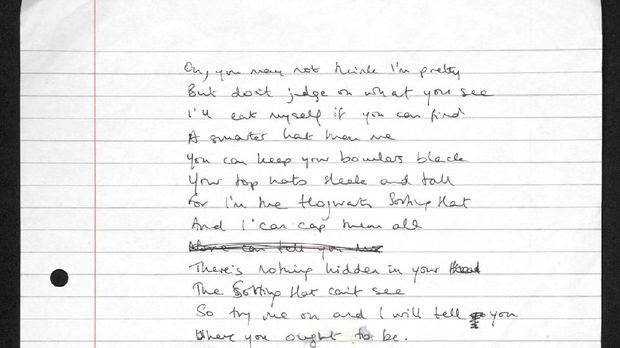 Oh, you may not think I'm pretty
But don't judge on what you see
I'll eat myself if you can find
A smarter hat than me
You can keep your bowlers black
Your top hats sleek and tall
For I'm the Hogwarts Sorting Hat
And I can cap them all
There's nothing hidden in your head
The Sorting Hat can't see
So try me on and I will tell you
Where you ought to be.